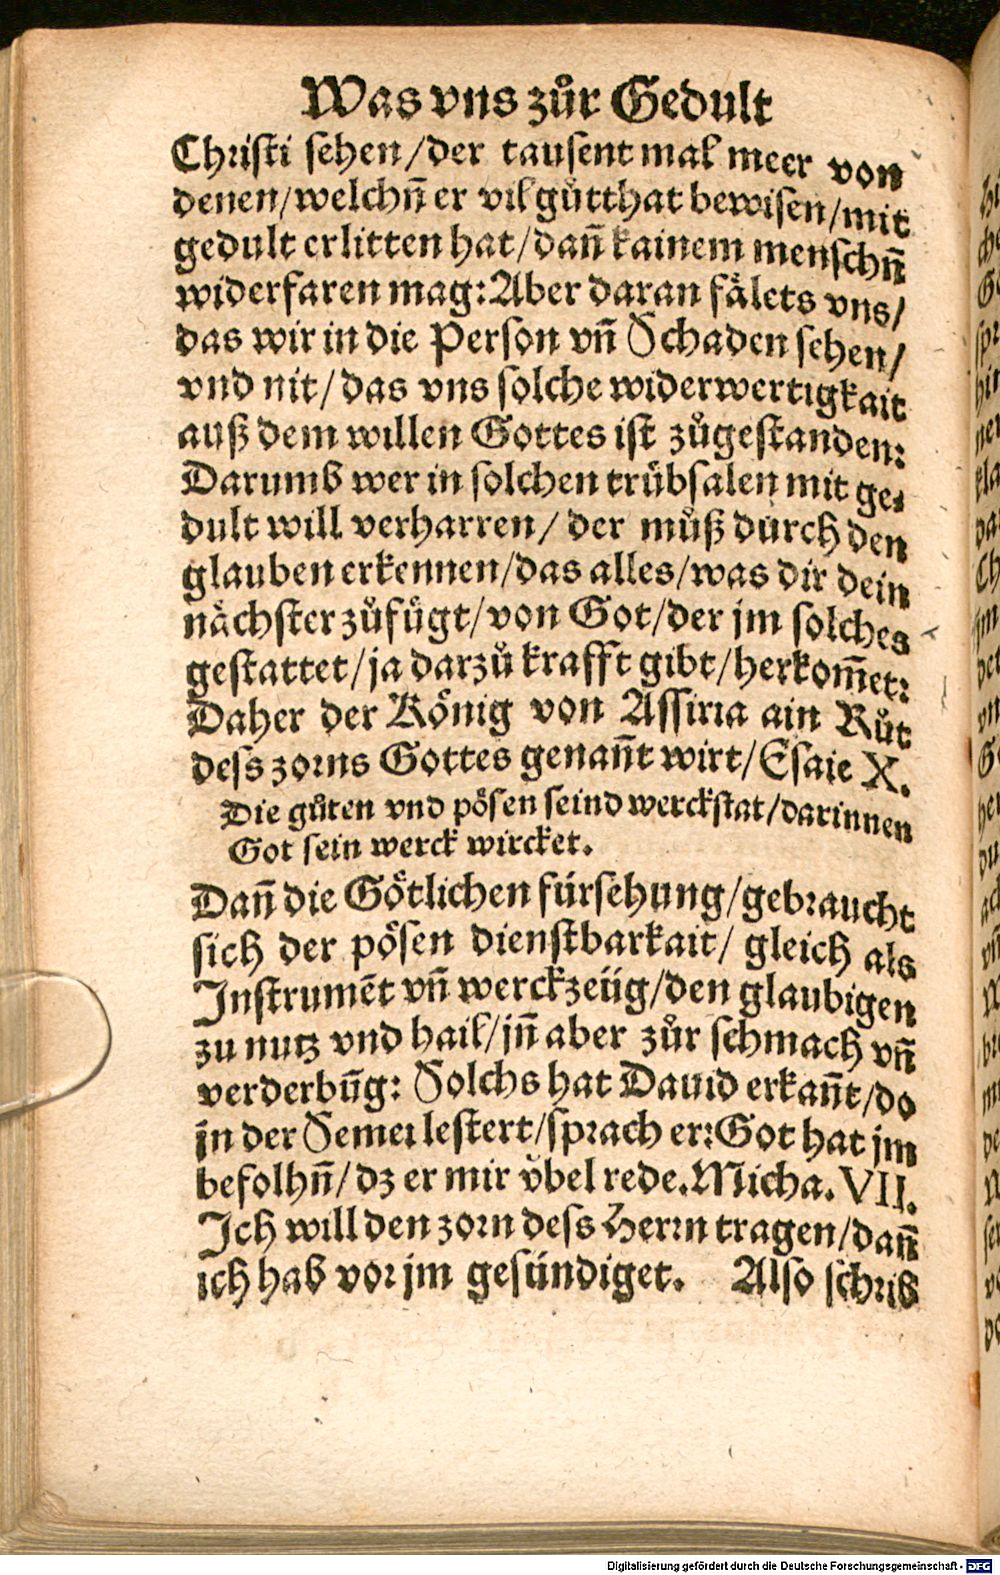 Was vns zůr Gedult
Christi sehen/der tausent mal meer von
denen/welchñ er vil gůtthat bewisen/mit
gedult erlitten hat/dañ kainem menschñ
widerfaren mag: Aber daran fålets vns/
das wir in die Person vñ Schaden sehen/
vnd nit/das vns solche widerwertigkait
auß dem willen Gottes ist zůgestanden:
Darumb wer in solchen trübsalen mit ge⸗
dult will verharren/ der můß durch den
glauben erkennen/das alles/was dir dein
nåchster zůfügt/von Got/der jm solches
gestattet/ja darzů krafft gibt/herkom̃et:
Daher der Kőnig von Assiria ain Růt
dess zorns Gottes genañt wirt/Esaie X.
Die gůten vnd pősen seind werckstat/darinnen
Got sein werck wircket.
Dañ die Gőtlichen fürsehung/gebraucht
sich der pősen dienstbarkait/ gleich als
Instrumẽt vñ werckzeüg/den glaubigen
zu nutz vnd hail/jñ aber zůr schmach vñ
verderbũg: Solchs hat Dauid erkañt/do
jn der Semei lestert/sprach er: Got hat jm
befolhñ/dz er mir v̊bel rede. Micha. VII.
Ich will den zorn dess Herrn tragen/dañ
ich hab vor jm gesündiget. Also schrib
Digitalisierung gefördert durch die Deutsche Forschungsgemeinschaft - DFG